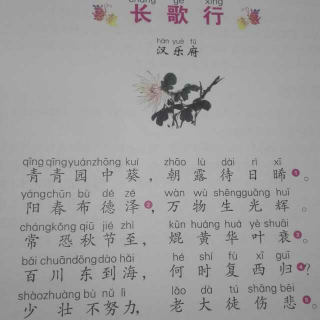 cháng gē xíng
长歌行
hàn yuè fǔ
汉乐府
qīng qīng yuán zhōng kuí zhāo lù dài rì xī
青青园中葵，朝露待日晞❶。
yáng chūn bù dé zé wàn wù shēng guāng huī
阳春布德泽❷，万物生光辉。
cháng kǒng qiū jié zhì kūn huáng huá yè shuāi
常恐秋节至，焜黄华叶衰❸。
bǎi chuān dōng dào hǎi hé shí fù xī guī
百川东到海，何时复西归❹？
shào zhuàng bù nǔ lì lǎo dà tú shāng bēi
少壮不努力，老大徒伤悲❺。